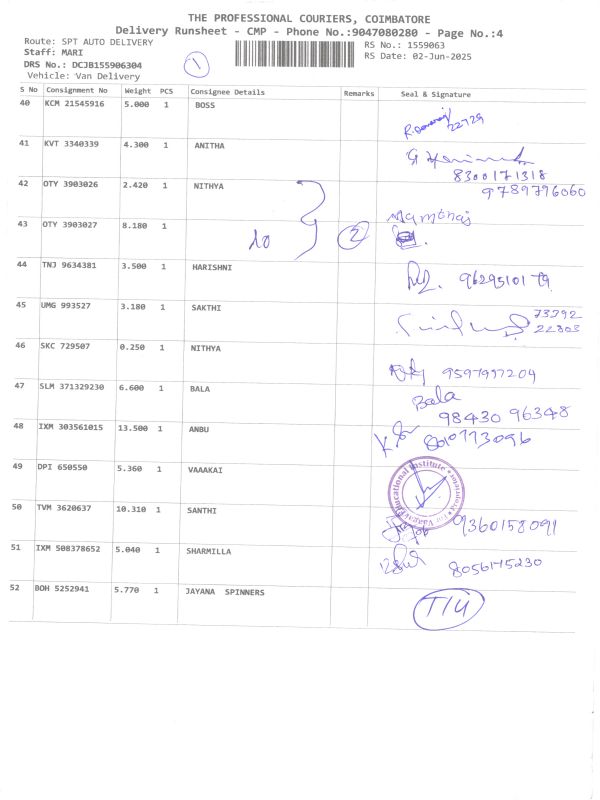 THE PROFESSIONAL COURIERS, COIMBATORE
Delivery Runsheet - CMP - Phone No.:9047080280 - Page No.:4
Route: SPT AUTO DELIVERY RS No.: 1559063
Staff: MARI RS Date: 02-Jun-2025
DRS No.: DCJB155906304 1
Vehicle: Van Delivery
S No Consignment No Weight PCS Consignee Details Remarks Seal & Signature
40 KCM 21545916 5.000 1 BOSS
41 KVT 3340339 4.300 1 ANITHA
8300171318
42 OTY 3903026 2.420 1 NITHYA 9789796060
43 OTY 3903027 8.180 1 2
44 TNJ 9634381 3.500 1 HARISHNI
45 UMG 993527 3.180 1 SAKTHI 73792
22803
46 SKC 729507 0.250 1 NITHYA 9597997209
47 SLM 371329230 6.600 1 BALA Bala
98430 96348
48 IXM 303561015 13.500 1 ANBU 8010773096
49 DPI 650550 5.360 1 VAAAKAI
50 TVM 3620637 10.310 1 SANTHI 9360158091
51 IXM 508378652 5.040 1 SHARMILLA
52 BOH 5252941 5.770 1 JAYANA SPINNERS